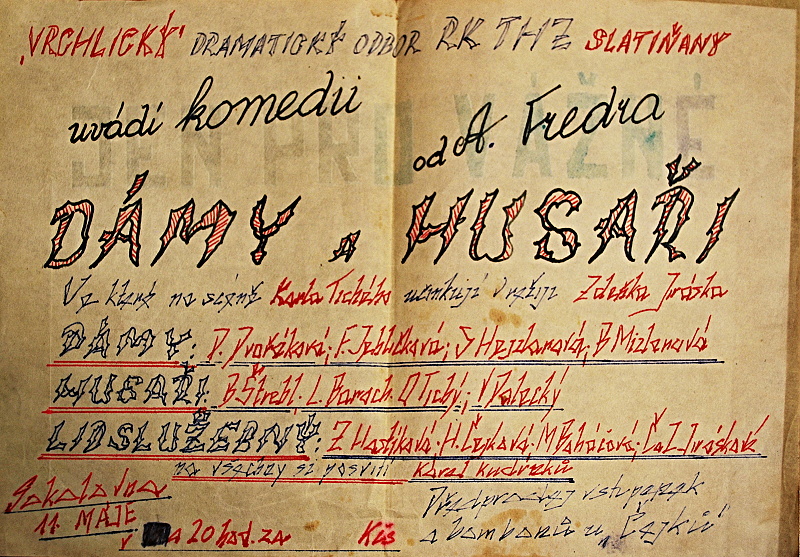 "VRCHLICKÝ" DRAMATICKÝ ODBOR RK THZ SLATIŇANY
uvádí komedii od A. Fredra
DÁMY a HUSAŘI
Ve které na scéně Karla Tichého účinkují v režii Zdeňka Jiráska
DÁMY: D. Dvořáková; F. Jehličková; S Hejzlarová; B Mizlerová
HUSAŘI: B. Štrebl. L. Baroch. O Tichý; V Polecký
LID SLUŽEBNÝ: Z Hladíková; H. Čejková; M Boháčová; Č a Z. Jiráskové
na všechny si posvítí Karel Kudrnka
Sokolovna
11 MÁJE
v a 20 hod. za Kčs
Předprodej vstupenek
a bombonů u "Čejků"